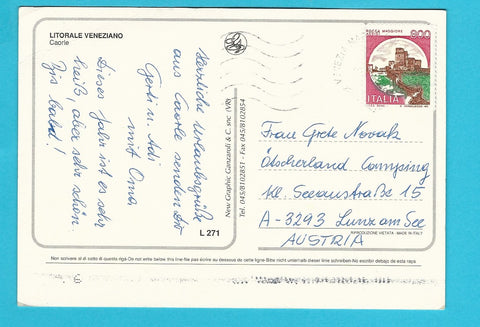 LITORALE VENEZIANO
Caorle
Herzliche Urlaubsgrüße
aus Caorle senden Dir
Gerli u. Adi
mit Oma
Dieses Jahr ist es sehr
heiß, aber sehr schön.
Bis bald!
L 271
New Graphic Ganzaroli & C. snc (VR)
Tel. 045/8102851 - Fax 045/8102854
ROCCA MAGGIORE
800
ITALIA
Frau Grete Novak
Ötscherland Camping
Kl. Seeaustraße 15
A-3293 Lunz am See
AUSTRIA
RIPRODUZIONE VIETATA - MADE IN ITALY
Non scrivere al di sotto di questa riga-Do not write below this line-Ne pas écrire au-dessous de cette ligne-Bitte nicht unterhalb dieser linie schreiben-No escribir debajo de esta raya